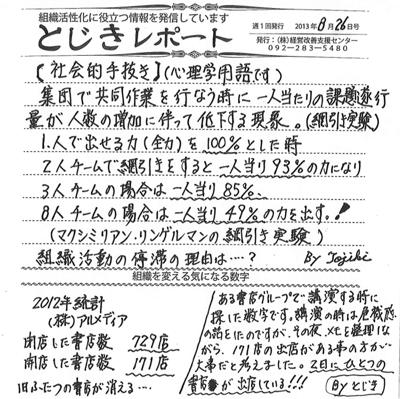 組織活性化に役立つ情報を発信しています
とじきレポート
週1回発行 2013年8月26日号
発行：(株)経営改善支援センター
092-283-5480
【社会的手抜き】(心理学用語です)
集団で共同作業を行なう時に一人当たりの課題遂行
量が人数の増加に伴って低下する現象。(綱引き実験)
1.人で出せる力(全力)を100%とした時
2人チームで綱引きをすると一人当り93%の力になり
3人チームの場合は一人当り85%.
8人チームの場合は一人当り49%の力を出す。!
(マクシミリアン.リンゲルマンの綱引き実験)
組織活動の停滞の理由は…? By Tojiki
組織を変える気になる数字
2012年統計
(株)アルメディア
閉店した書店数 729店
開店した書店数 171店
旧ふたつの書店が消える…
ある書店グループで講演する時に
探した数字です。講演の時は危機感
の話をしたのですが、その夜、メモを整理しな
がら、171店の出店がある事の方が
大事だと考えました。2日にひとつの
書店が出店している!!!
Byとじき